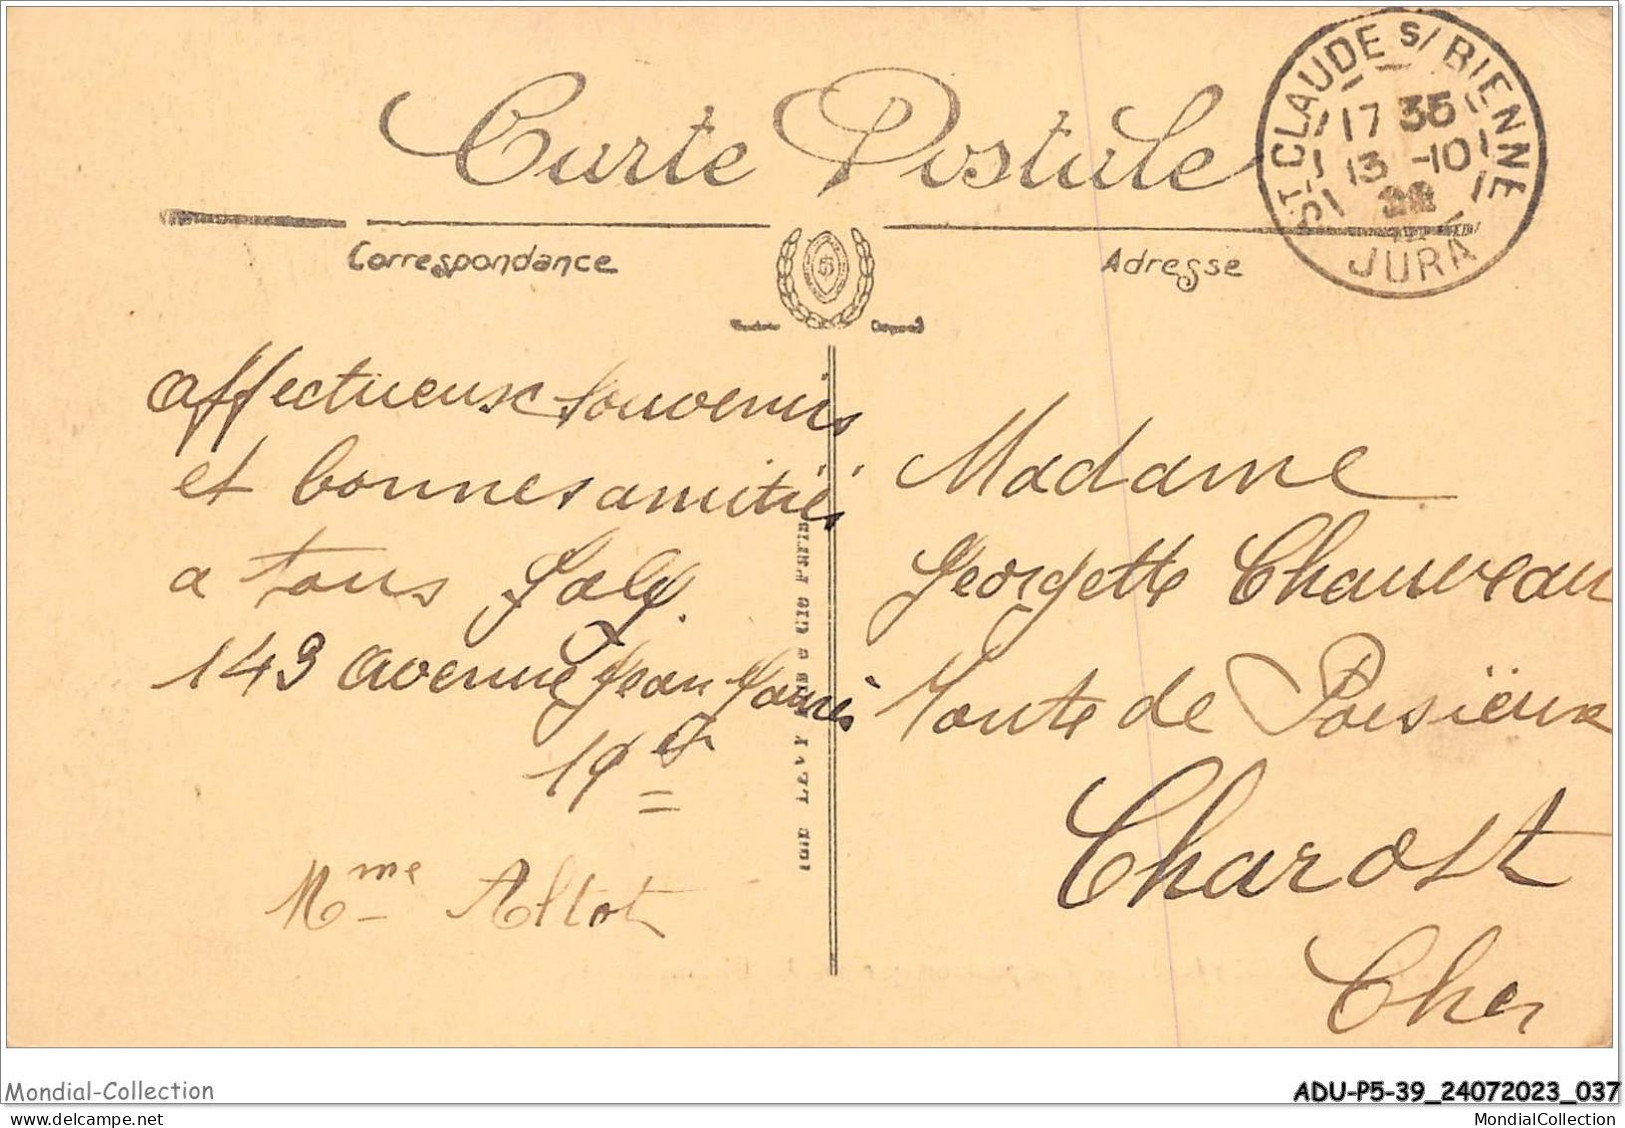 Carte Postale
ST CLAUDE S/ BIENNE
17 35
13 -10
22
JURA
Correspondance
Adresse
5
affectueux souvenirs
et bonnes amitiés
a tous Joly.
143 avenue Jean Jaurès
19
Mme Altot
LEVY Cie PARIS
Madame
Georgette Chauveau
Route de Poisïeux
Charost
Cher
Mondial-Collection
ADU-P5-39_24072023_037
MondialCollection